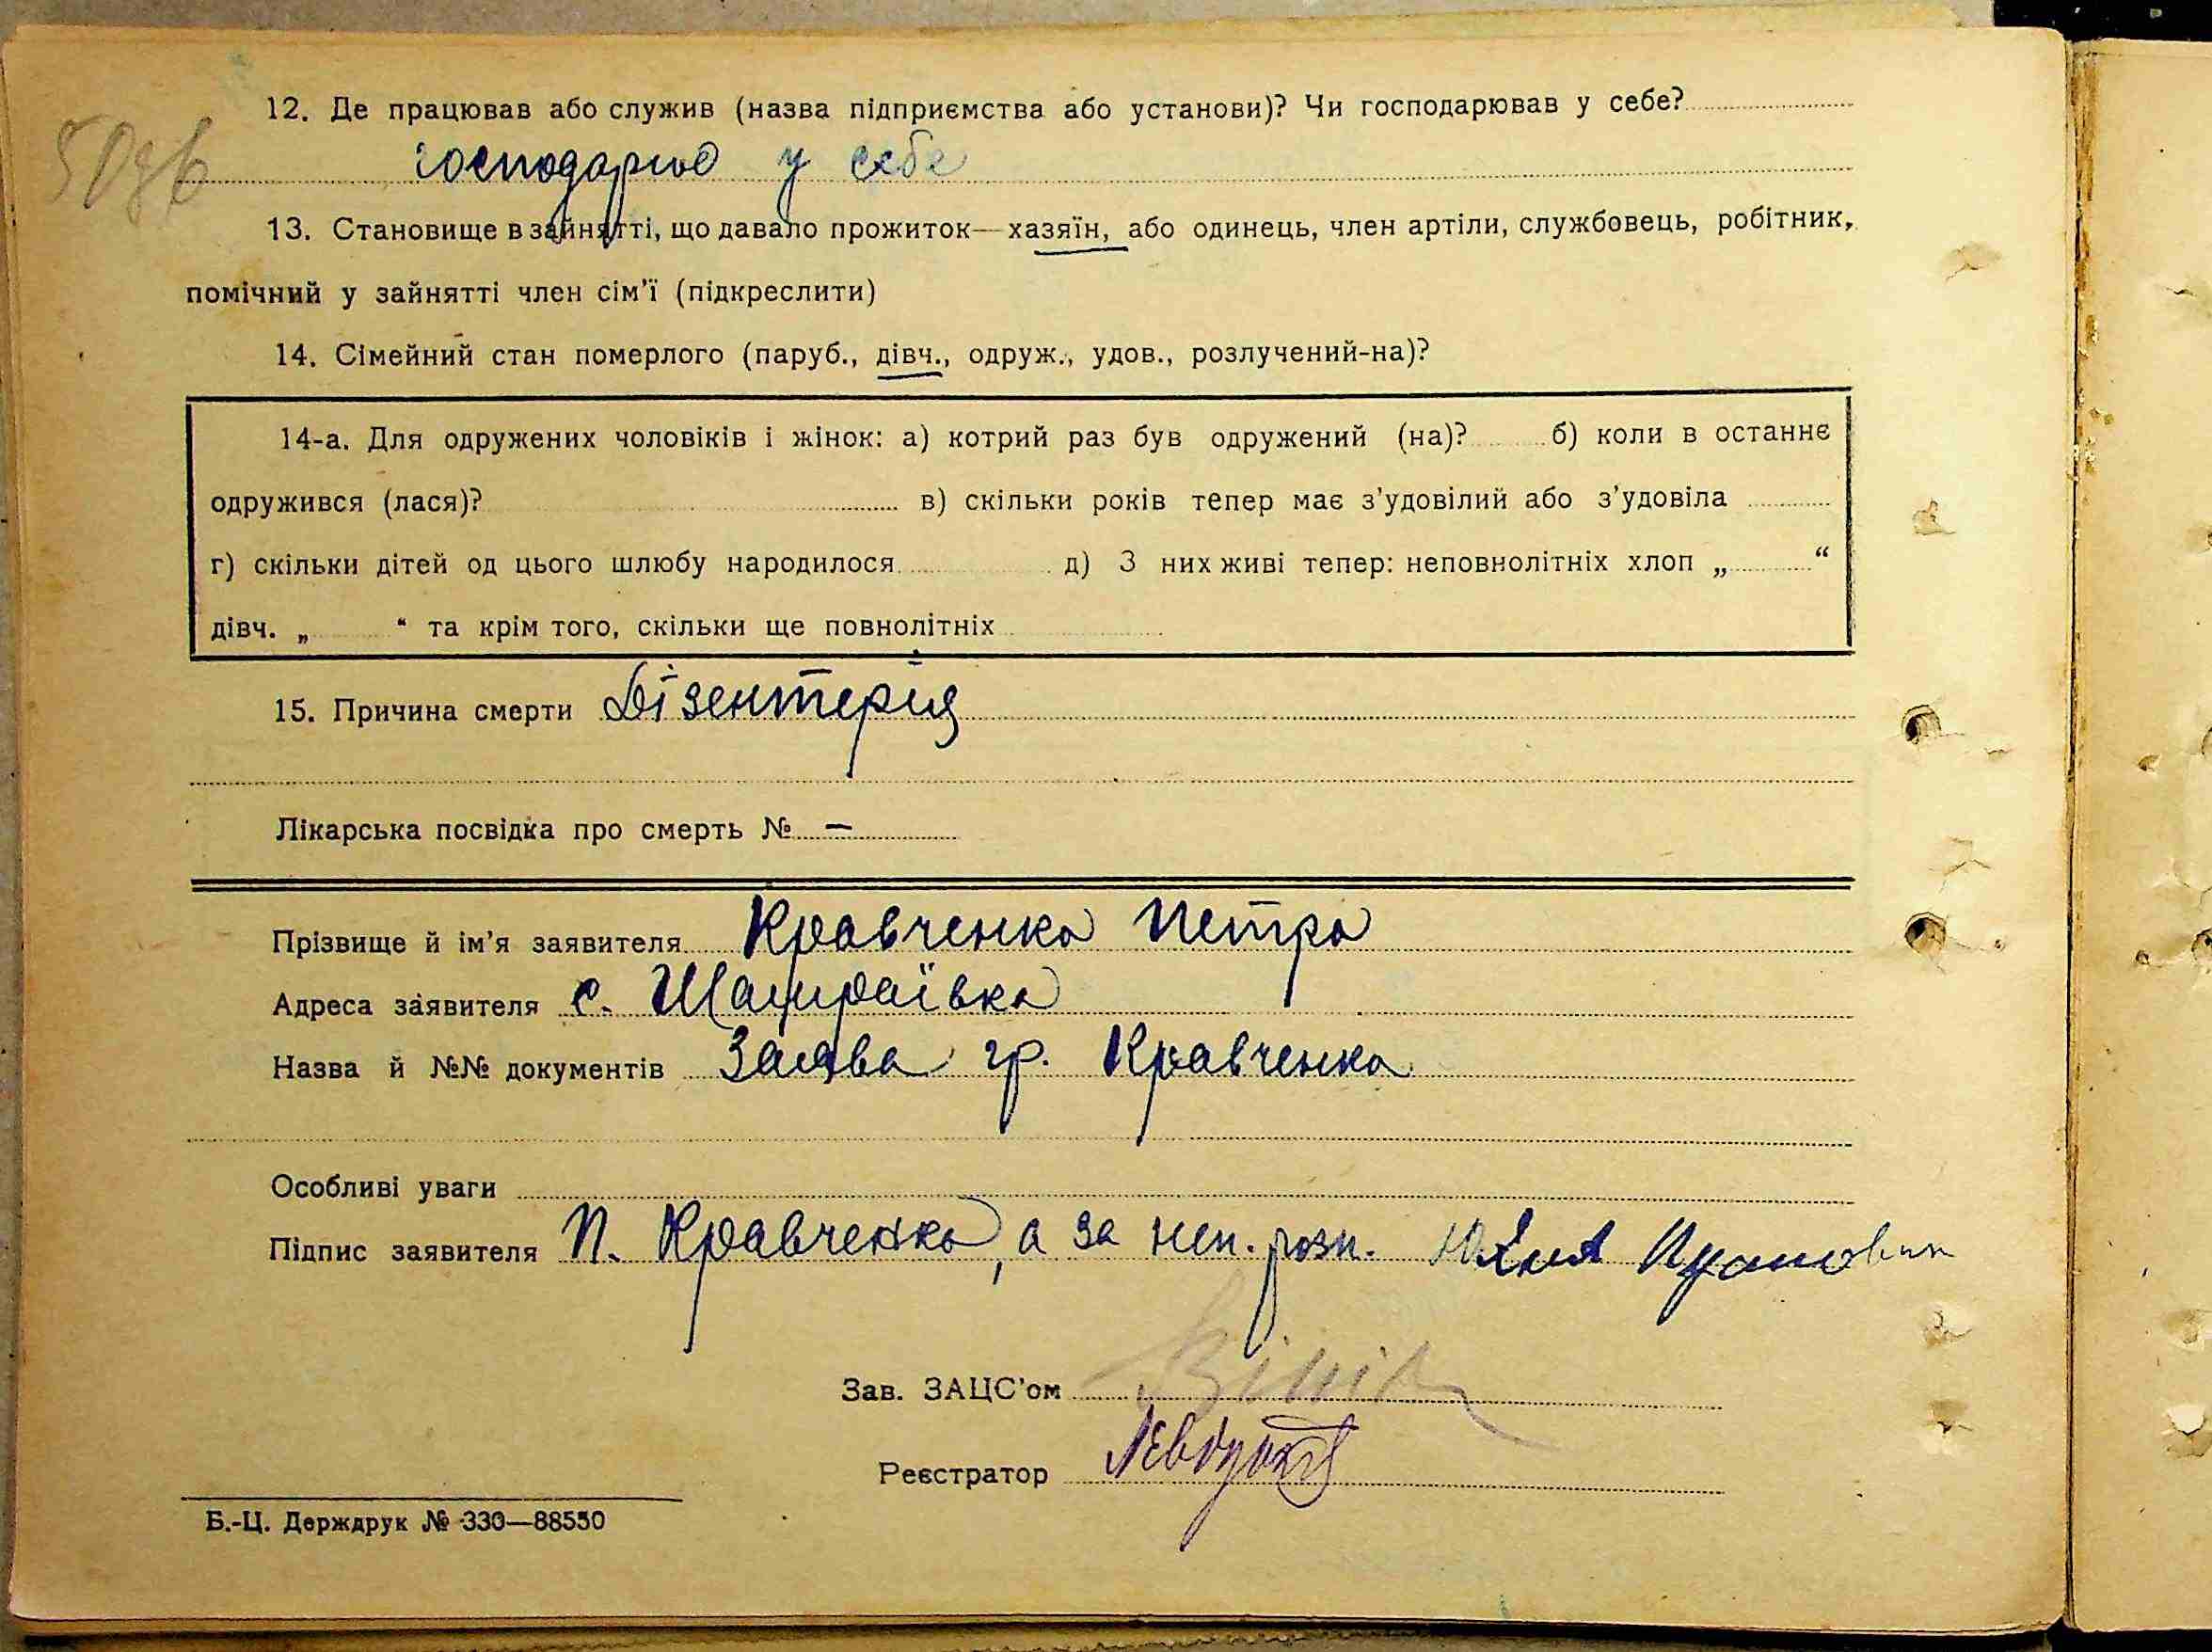 12. Де працював або служив (назва підприємства або установи)? Чи господарював у себе?
господарює у себе
13. Становище в зайнятті, що давало прожиток—хазяїн, або одинець, член артіли, службовець, робітник,
помічний у зайнятті член сім'ї (підкреслити)
14. Сімейний стан померлого (паруб., дівч., одруж., удов., розлучений-на)?
14-а. Для одружених чоловіків і жінок: а) котрий раз був одружений (на)? б) коли в останнє
одружився (лася)? в) скільки років тепер має з'удовілий або з'удовіла
г) скільки дітей од цього шлюбу народилося д) З них живі тепер: неповнолітніх хлоп „ “
дівч. „ “ та крім того, скільки ще повнолітніх
15. Причина смерти Дізентерія
Лікарська посвідка про смерть № —
Прізвище й ім'я заявителя Кравченко Петро
Адреса заявителя с. Шамраївка
Назва й №№ документів Заява гр. Кравченка
Особливі уваги
Підпис заявителя П. Кравченко, а за неп. розп.
Зав. ЗАЦС'ом
Реєстратор
Б.-Ц. Держдрук № 330—88550